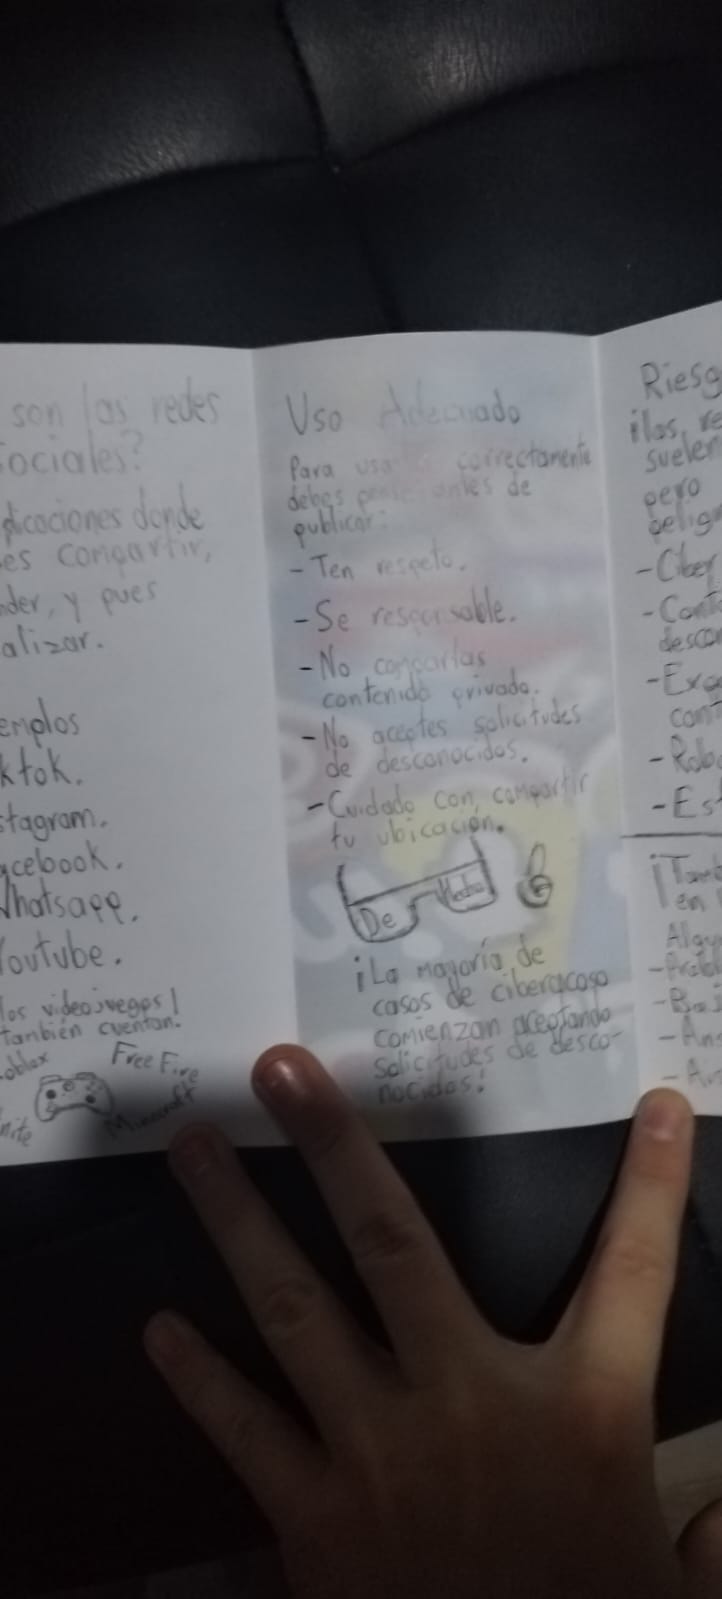 son las redes
sociales?
plicaciones donde
es compartir,
nder, y pues
alizar.
emplos
ktok.
stagram.
acebook.
Whatsapp.
Youtube.
los videojuegos!
también cuentan.
oblox
Free Fire
Minecraft
nite
Uso Adecuado
Para usar correctamente
debes antes de
publicar:
- Ten respeto.
- Se responsable.
- No compartas
contenido privado.
- No aceptes solicitudes
de desconocidos.
- Cuidado con compartir
tu ubicación.
De
¡La mayoría de
casos de ciberacoso
comienzan aceptando
solicitudes de desco-
nocidos!
Riesg
¡las re
suelen
pero
peligr
- Ciber
- Conta
descon
- Expo
cont
- Robo
- Est
¡Tamb
en
Algu
- Probl
- Baj
- An